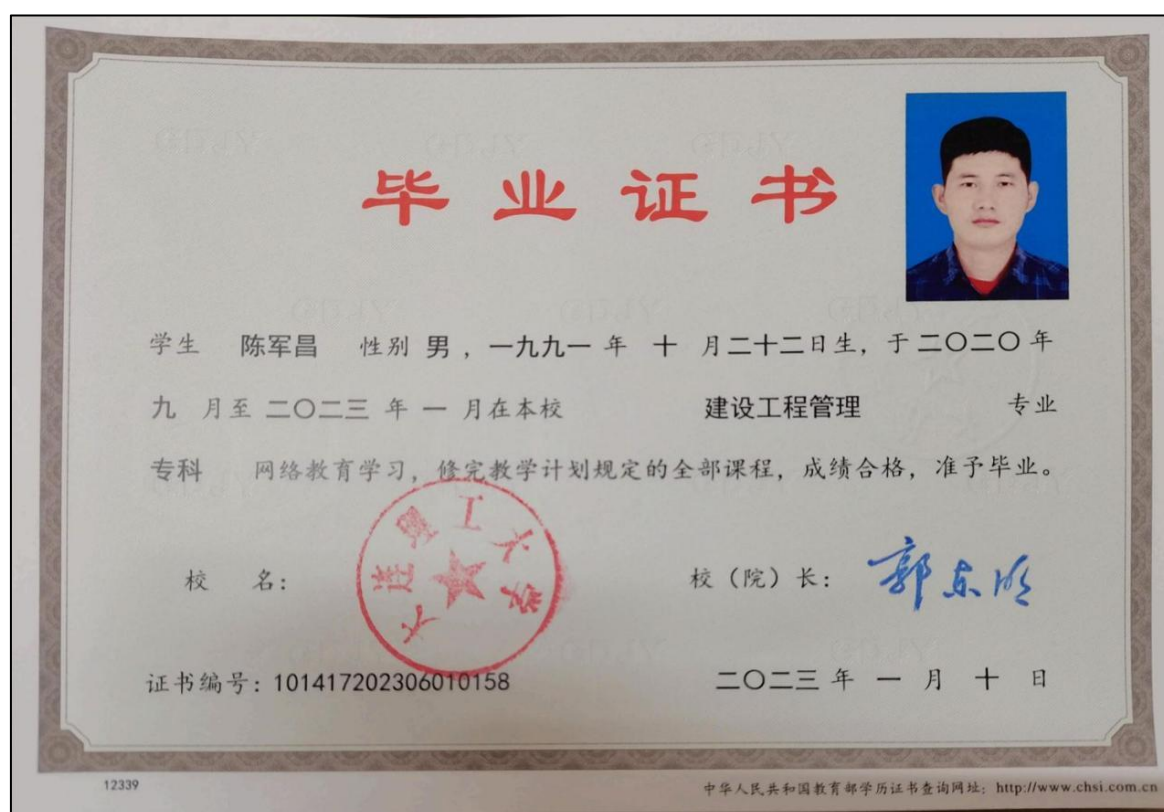 毕业证书
学生 陈军昌 性别 男 ，一九九一 年 十 月二十二日生，于 二〇二〇 年
九 月至 二〇二三 年 一 月在本校 建设工程管理 专业
专科 网络教育学习，修完教学计划规定的全部课程，成绩合格，准予毕业。
校 名： 大连理工大学 校（院）长： 郭东明
证书编号：101417202306010158 二〇二三 年 一 月 十 日
12339 中华人民共和国教育部学历证书查询网址：http://www.chsi.com.cn